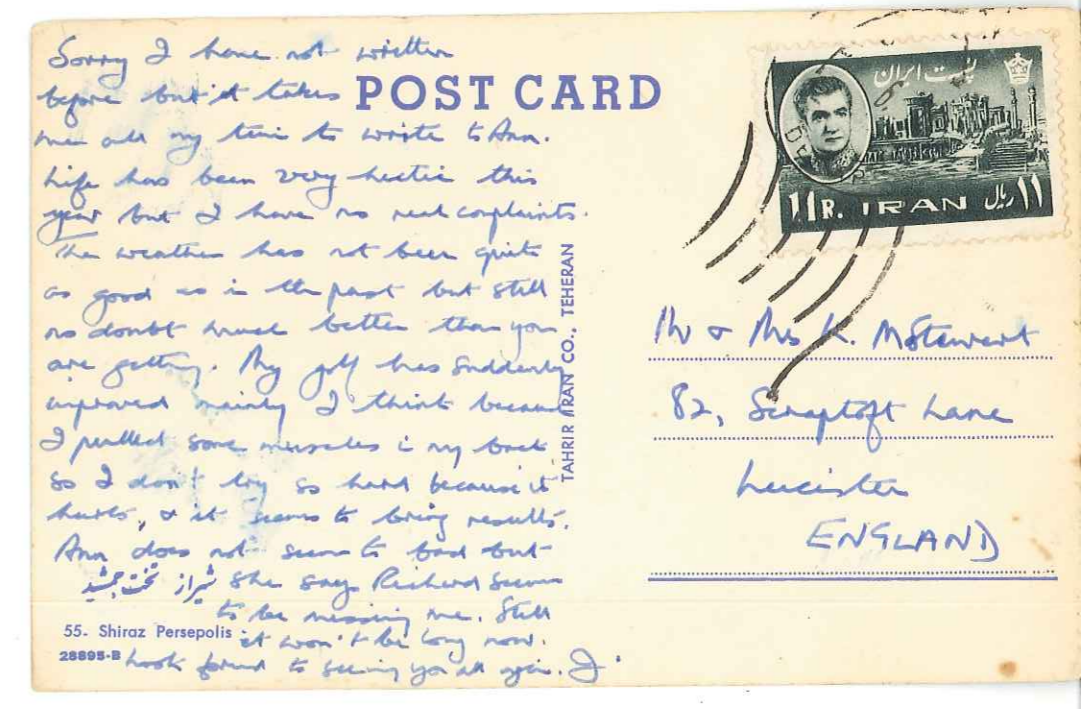 Sorry I have not written
before but it takes
me all my time to write to Ann.
Life has been very hectic this
year but I have no real complaints.
The weather has not been quite
as good as in the past but still
no doubt much better than you
are getting. My golf has suddenly
improved mainly I think because
I pulled some muscles in my back
so I don't try so hard because it
hurts, & it seems to bring results.
Ann does not seem to bad but
she says Richard seems
to be missing me. Still
it won't be long now.
Look forward to seeing you all again. J.
شیراز تخت جمشید
55- Shiraz Persepolis
28895-B
POST CARD
TAHRIR IRAN CO., TEHERAN
پست ایران
11 R. IRAN ۱۱ ریال
Mr & Mrs K. MStewart
82, Scraptoft Lane
Leicister
ENGLAND